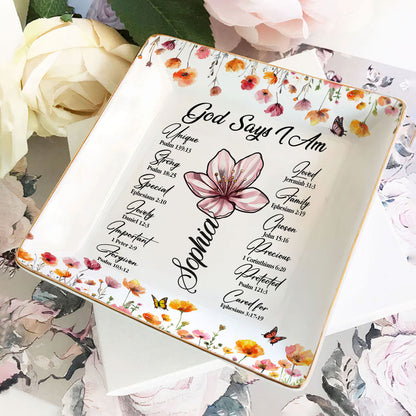 God Says I Am
Unique
Psalm 139:13
Strong
Psalm 18:25
Special
Ephesians 2:10
Lovely
Daniel 12:3
Important
1 Peter 2:9
Forgiven
Psalm 103:12
Sophia
Loved
Jeremiah 31:3
Family
Ephesians 2:19
Chosen
John 15:16
Precious
1 Corinthians 6:20
Protected
Psalm 121:3
Cared for
Ephesians 3:17-19